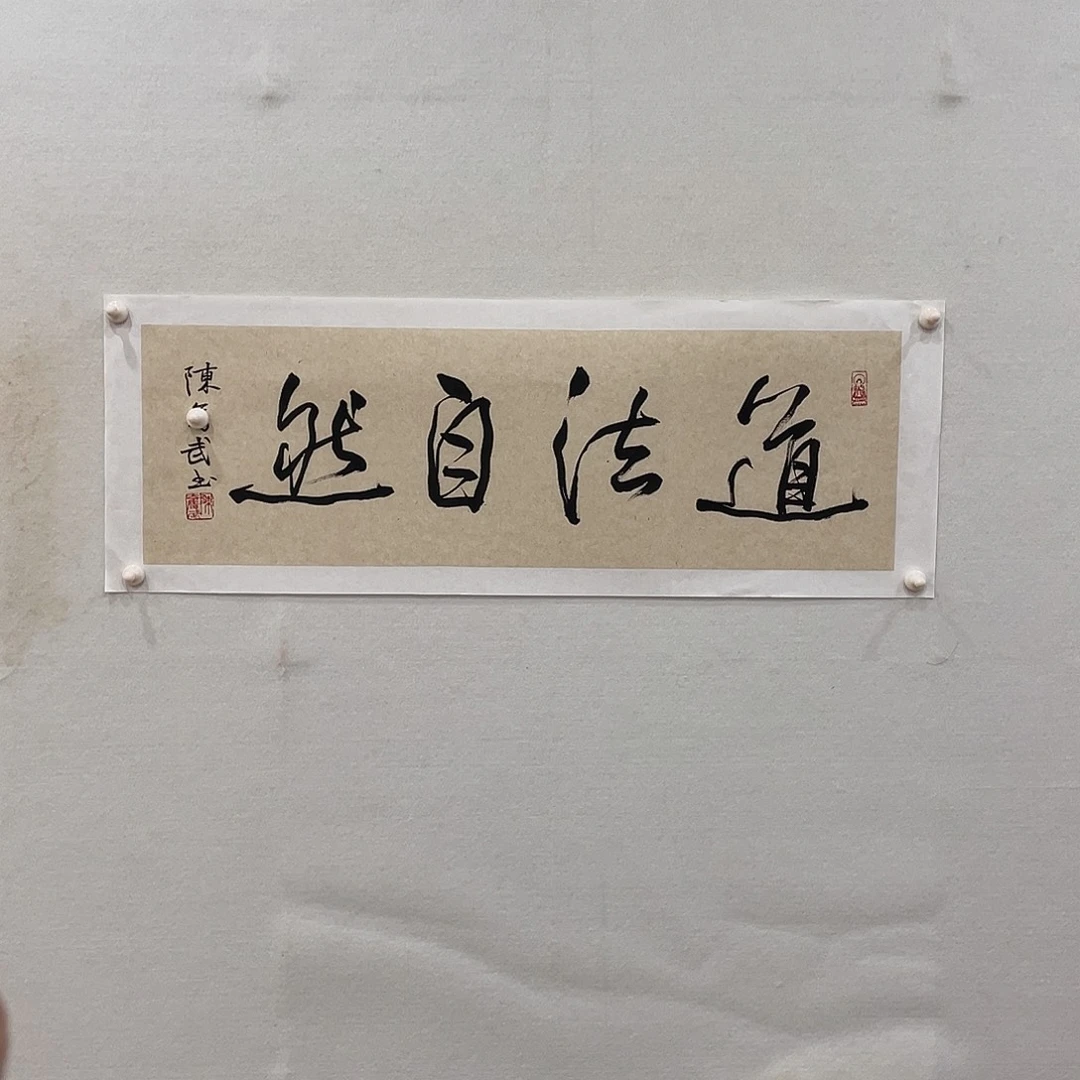 道法自然
陳 武书